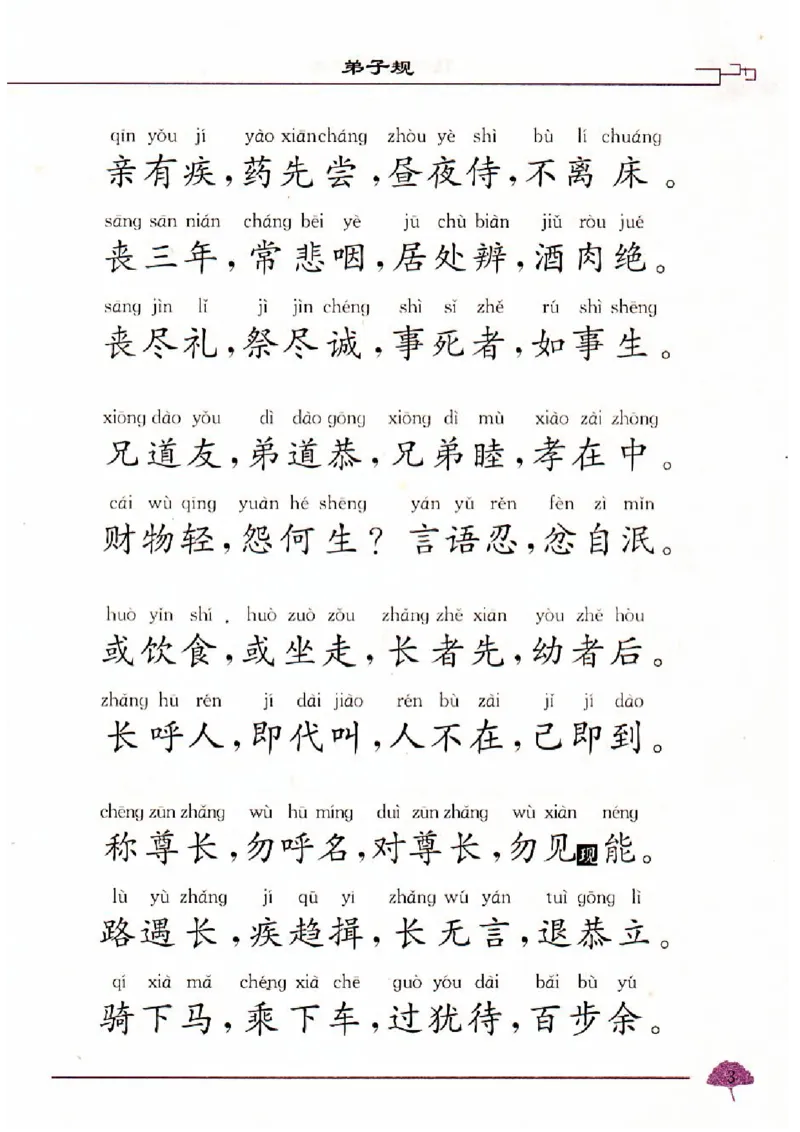 弟子规
qīn yǒu jí yào xiāncháng zhòu yè shì bù lí chuáng
亲有疾，药先尝，昼夜侍，不离床。
sāng sān nián cháng bēi yè jū chù biàn jiǔ ròu jué
丧三年，常悲咽，居处辨，酒肉绝。
sāng jìn lǐ jì jìn chéng shì sǐ zhě rú shì shēng
丧尽礼，祭尽诚，事死者，如事生。
xiōng dào yǒu dì dào gōng xiōng dì mù xiào zài zhōng
兄道友，弟道恭，兄弟睦，孝在中。
cái wù qīng yuàn hé shēng yán yǔ rěn fèn zì mǐn
财物轻，怨何生？言语忍，忿自泯。
huò yǐn shí huò zuò zǒu zhǎng zhě xiān yòu zhě hòu
或饮食，或坐走，长者先，幼者后。
zhǎng hū rén jí dài jiào rén bù zài jǐ jí dào
长呼人，即代叫，人不在，己即到。
chēng zūn zhǎng wù hū míng duì zūn zhǎng wù xiàn néng
称尊长，勿呼名，对尊长，勿见现能。
lù yù zhǎng jí qū yī zhǎng wú yán tuì gōng lì
路遇长，疾趋揖，长无言，退恭立。
qí xià mǎ chéng xià chē guò yóu dài bǎi bù yú
骑下马，乘下车，过犹待，百步余。
3